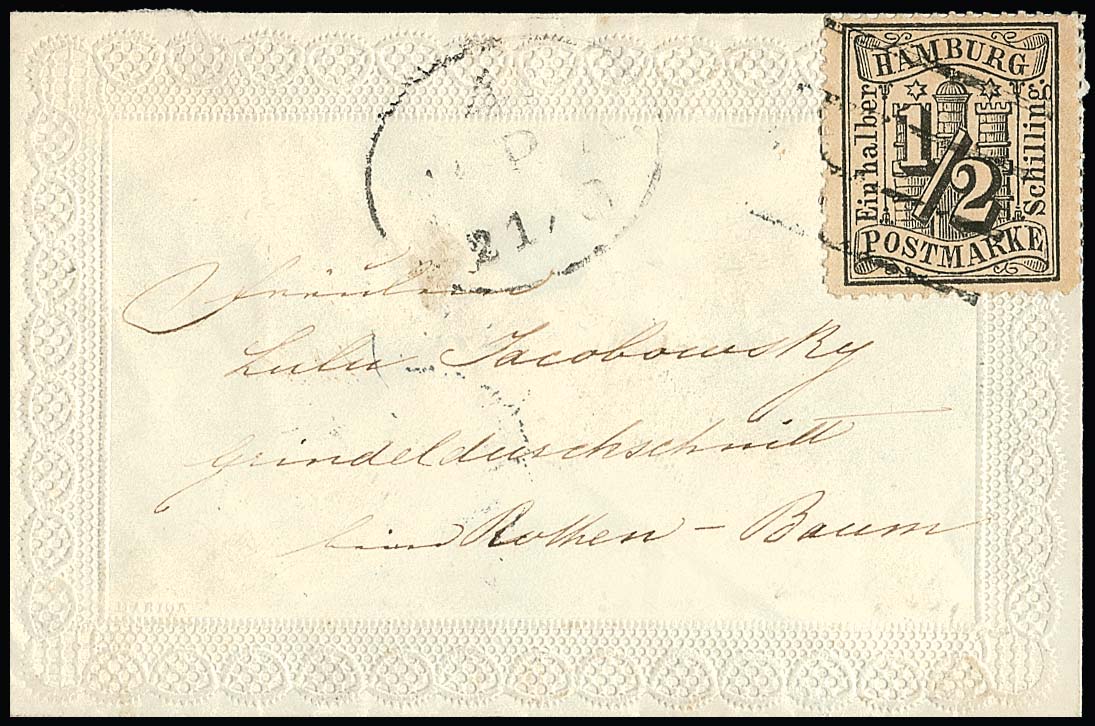 HAMBURG
Ein halber
1/2
Schilling
POSTMARKE
21
Fräulein
Lulu Jacobowsky
Grindeldurchschnitt
beim Rothen - Baum